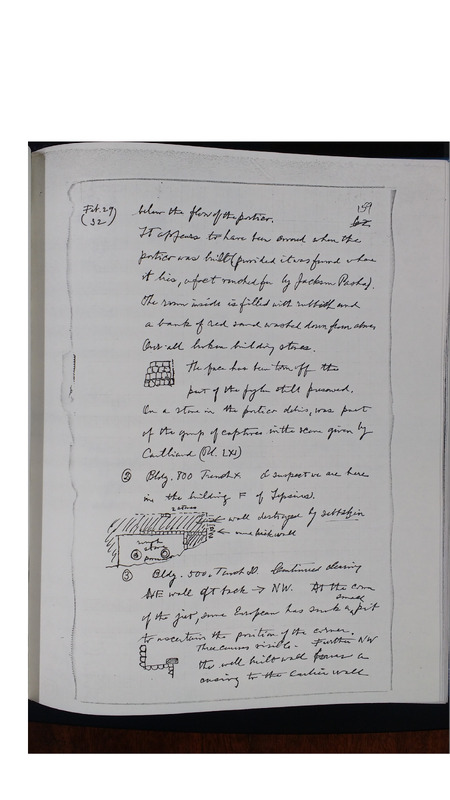 Feb. 29) below the floor of the portico. 159
(32
It appears to have been covered when the
portico was built (provided it was found where
it lies, a fact vouched for by Jackson Pasha).
The room inside is filled with rubbish and
a bank of red sand washed down from above
Over all broken building stones.
The face has been torn off this
part of the pylon still preserved.
On a stone in the portico debris, was part
of the group of captives in the scene given by
Cailliaud (Pl. LXI)
② Bldg. 800 Trench X I suspect we are here
in the building F of Lepsius.
2 stones
wall destroyed by sebbakhin
← mud brick wall
rough stone
③ Bldg. 500, Trench D. Continued clearing
NE wall of back → NW. At the corn
small
of the jut, some European has sunk a pit
to ascertain the position of the corner.
Three courses visible. Further NW
the well built wall forms a
casing to the earlier wall